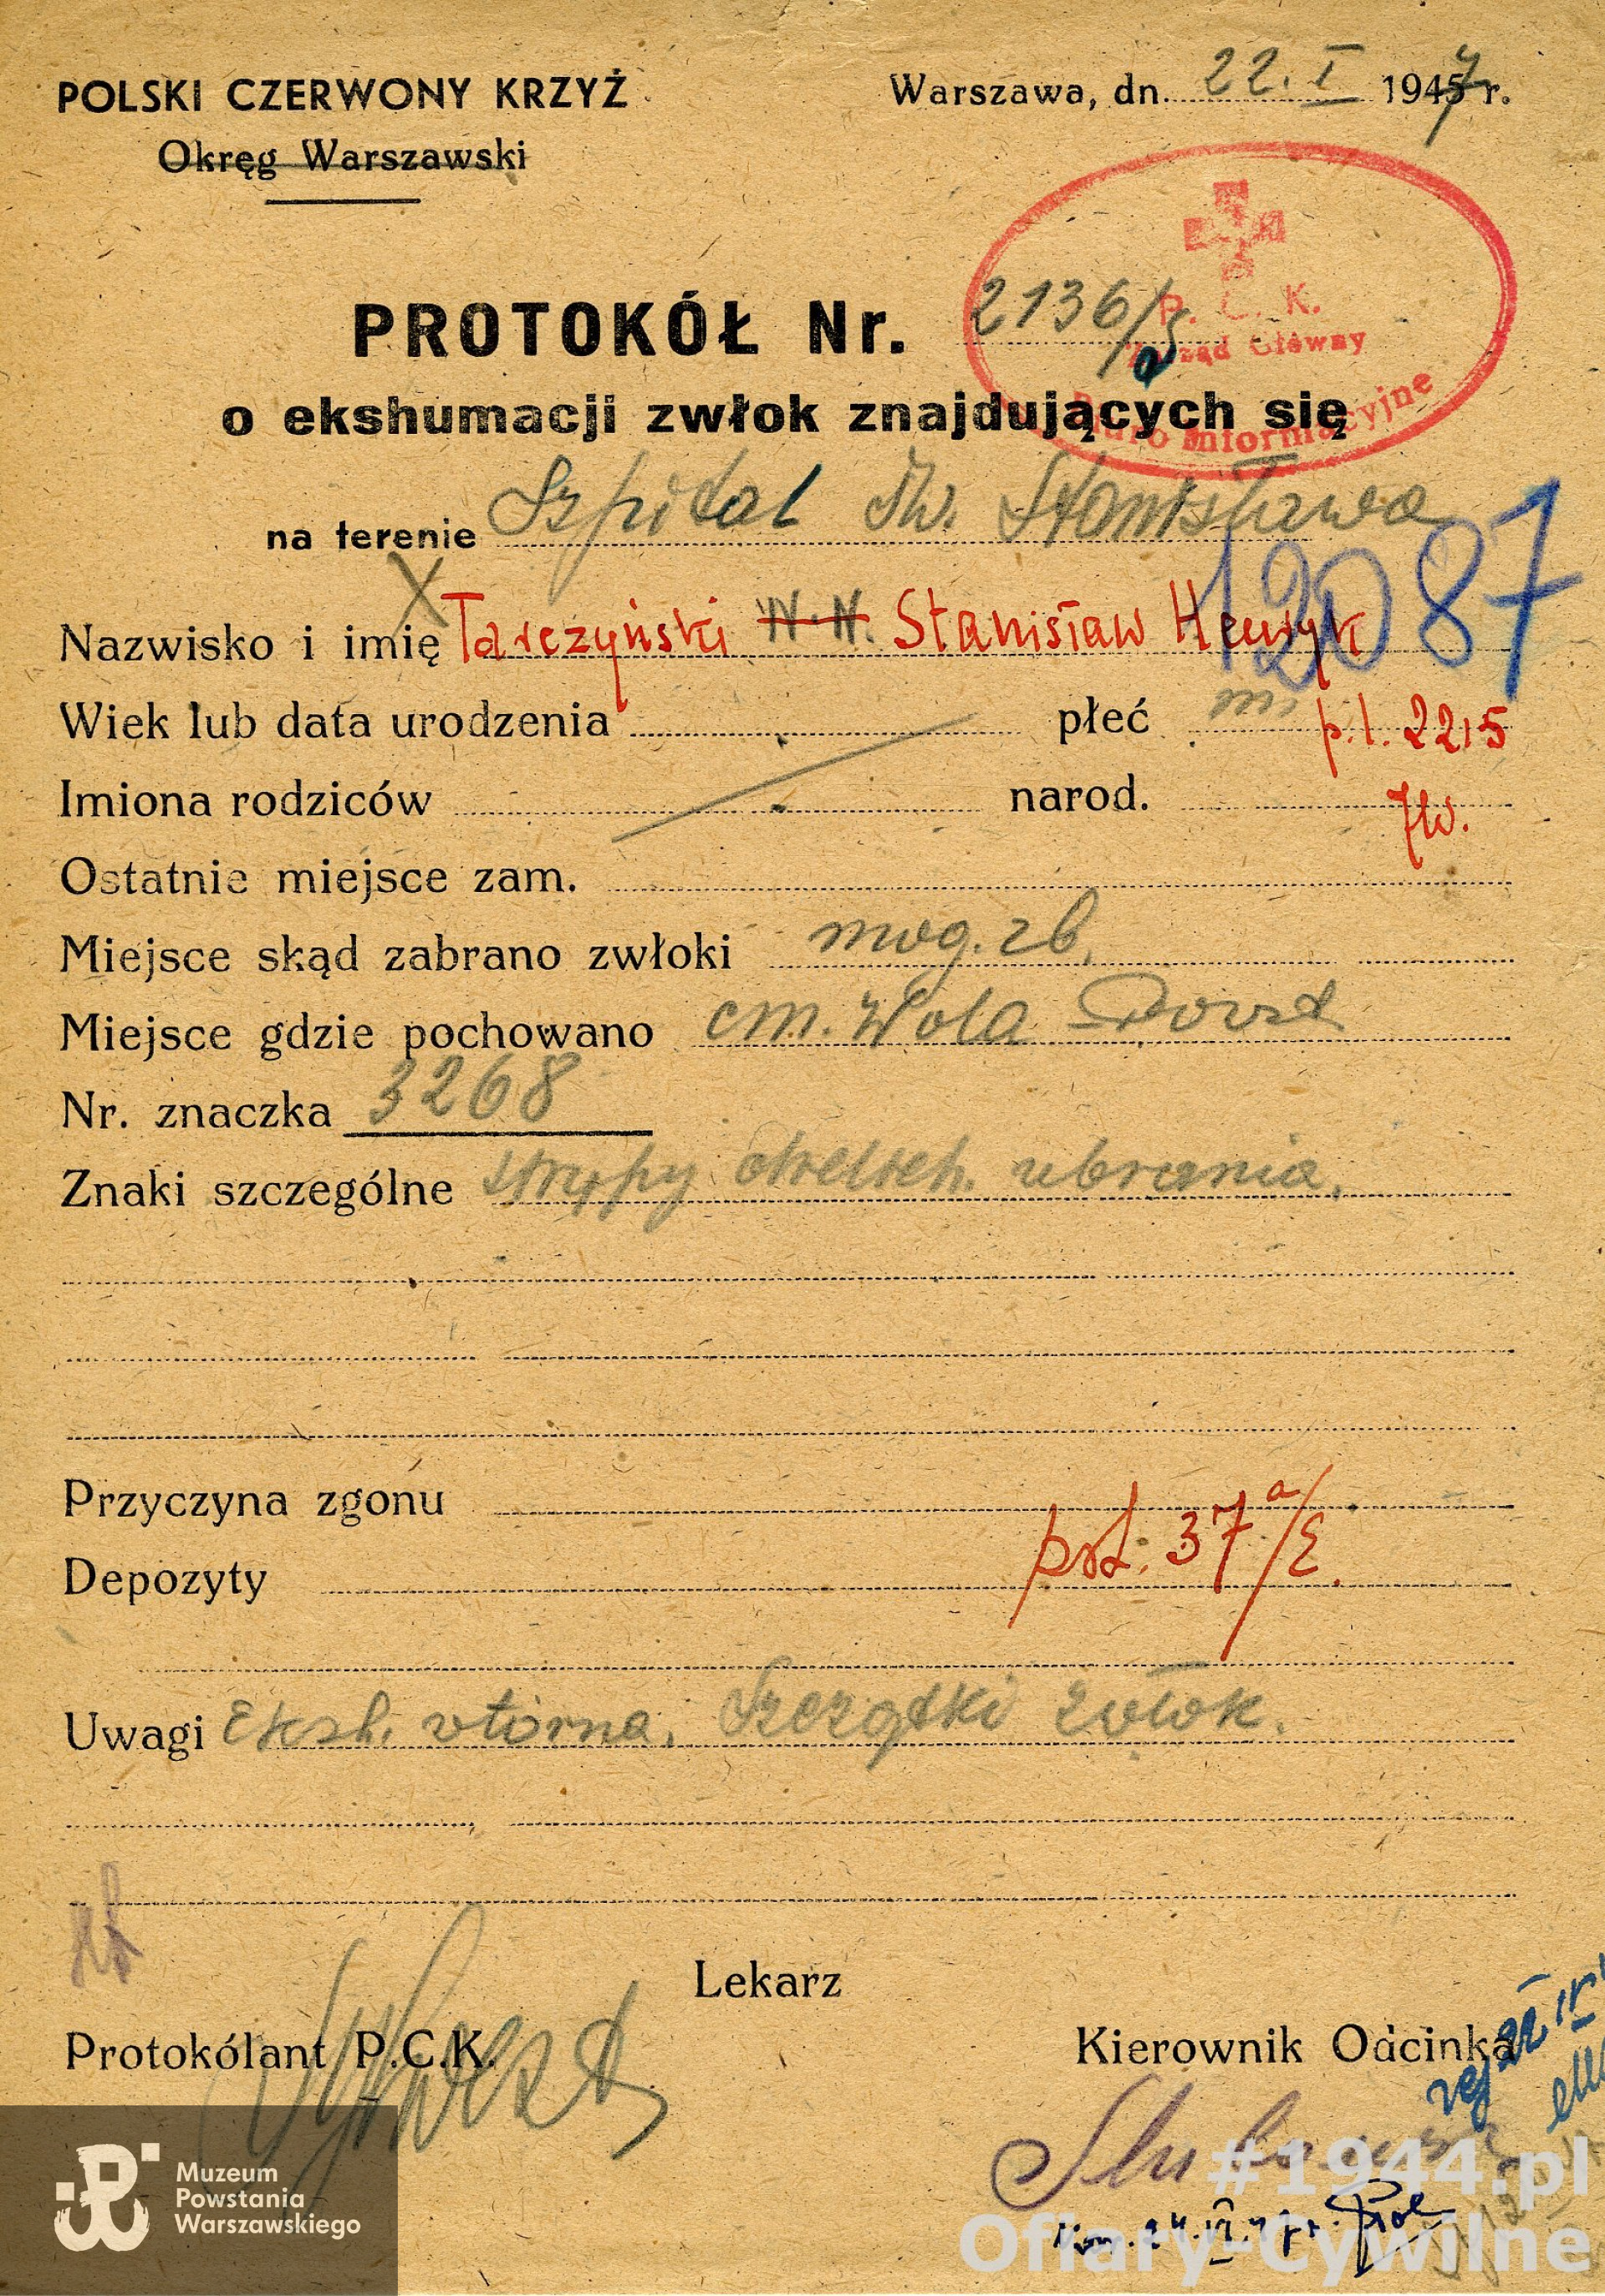 POLSKI CZERWONY KRZYŻ
Warszawa, dn. 22. I 1947 r.
Okręg Warszawski
P. C. K.
Zarząd Główny
Biuro Informacyjne
PROTOKÓŁ Nr. 2136/
o ekshumacji zwłok znajdujących się
na terenie Szpital Św. Stanisława
12087
Nazwisko i imię Tarczyński N.N. Stanisław Henryk
Wiek lub data urodzenia płeć m.
p.l. 2215
Imiona rodziców narod.
Ostatnie miejsce zam.
Miejsce skąd zabrano zwłoki mog. zb.
Miejsce gdzie pochowano cm. Wola Powst
Nr. znaczka 3268
Znaki szczególne strzępy ubrania.
Przyczyna zgonu
prot. 37a/E.
Depozyty
Uwagi Eksh. wtórna. Szczątki zwłok.
Lekarz
Protokólant P.C.K.
Kierownik Odcinka
Muzeum
Powstania
Warszawskiego
#1944.pl
Ofiary-Cywilne